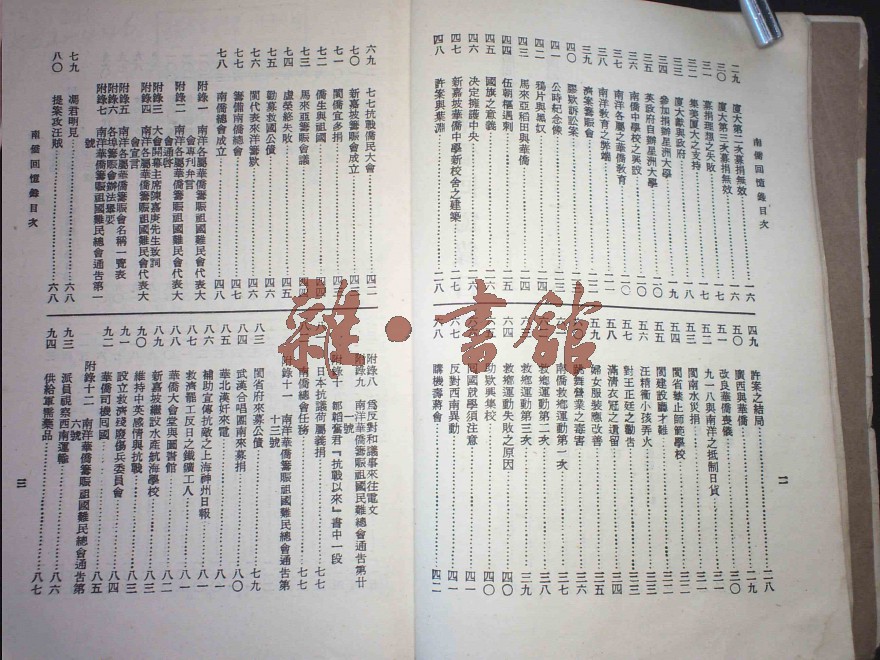 南僑回憶錄目次
二九 廈大第二次募捐無效 一六
三〇 廈大第三次募捐無效 一六
三一 募捐理想之失敗 一七
三二 集美廈大之支持 一八
三三 廈大獻與政府 一九
三四 參加捐辦星洲大學 一九
三五 英政府自辦星洲大學 二〇
三六 南僑中學校之興設 二〇
三七 南洋各屬之華僑教育 二〇
三八 南洋教育之弊端 二一
三九 濟案籌賑會 二二
四〇 膠欵訴訟案
四一 公時紀念像 二三
四二 鴉片與黑奴 二四
四三 馬來亞稻田與華僑 二四
四四 伍朝樞遇刺 二五
四五 國旗之意義 二六
四六 決定擁護中央 二六
四七 新嘉坡華僑中學新校舍之建築 二七
四八 許案與葉淵 二八
四九 許案之結局 二八
五〇 廣西與華僑 二九
五一 改良華僑喪儀 三〇
五二 九一八與南洋之抵制日貨 三一
五三 閩南水災捐 三一
五四 閩省禁止師範學校 三二
五五 閩建設廳才難 三二
五六 汪精衛小孩弄火 三三
五七 對王正廷之勸告 三四
五八 滿清衣冠之遺留 三四
五九 婦女服裝應改善 三五
六〇 跳舞營業之毒害 三六
六一 南僑救鄉運動第一次 三七
六二 救鄉運動第二次 三八
六三 救鄉運動第三次 三九
六四 救鄉運動失敗之原因 四〇
六五 助欵興集校 四〇
六六 回國就學須注意 四一
六七 反對西南異動 四一
六八 購機壽蔣會 四二
二
六九 七七抗戰僑民大會 四二
七〇 新嘉坡籌賑會成立 四三
七一 閩僑宜多捐 四三
七二 僑生與祖國 四四
七三 馬來亞籌賑會議 四四
七四 虛榮終失敗 四五
七五 勸募救國公債 四六
七六 閩代表來洋籌欵 四六
七七 籌備南僑總會 四七
七八 南僑總會成立 四八
附錄一 南洋各屬華僑籌賑祖國難民會代表大
會專刊弁言
附錄二 南洋各屬華僑籌賑祖國難民會代表大
會通啓
附錄三 大會開幕主席陳嘉庚先生致詞
附錄四 南洋各屬華僑籌賑祖國難民會代表大
會宣言
附錄五 南洋各屬華僑籌賑會名稱一覽表
附錄六 各埠籌賑會辦法舉要
附錄七 南洋華僑籌賑祖國難民總會通告第一
號
七九 馮君明見 六八
八〇 提案攻汪賊 六八
南僑回憶錄目次
附錄八 爲反對和議事來往電文
附錄九 南洋華僑籌賑祖國難民總會通告第廿
一號
附錄十 鄒韜奮君『抗戰以來』書中一段
八一 日本抗議荷屬義捐 七七
八二 南僑總會任務 七七
附錄十一 南洋華僑籌賑祖國難民總會通告第
十三號
八三 閩省府來募公債 七九
八四 武漢合唱團南來募捐 八〇
八五 華北漢奸來電 八一
八六 補助宣傳抗敵之上海神州日報 八一
八七 救濟罷工反日之鐵礦工人 八一
八八 華僑大會堂與圖書館 八二
八九 新嘉坡繼設水產航海學校 八三
九〇 維持中英感情與抗戰 八三
九一 設立救濟殘廢傷兵委員會 八四
九二 華僑司機囘國 八五
附錄十二 南洋華僑籌賑祖國難民總會通告第
六號
九三 派員視察西南運輸 八六
九四 供給軍需藥品 八七
三
雜·書館